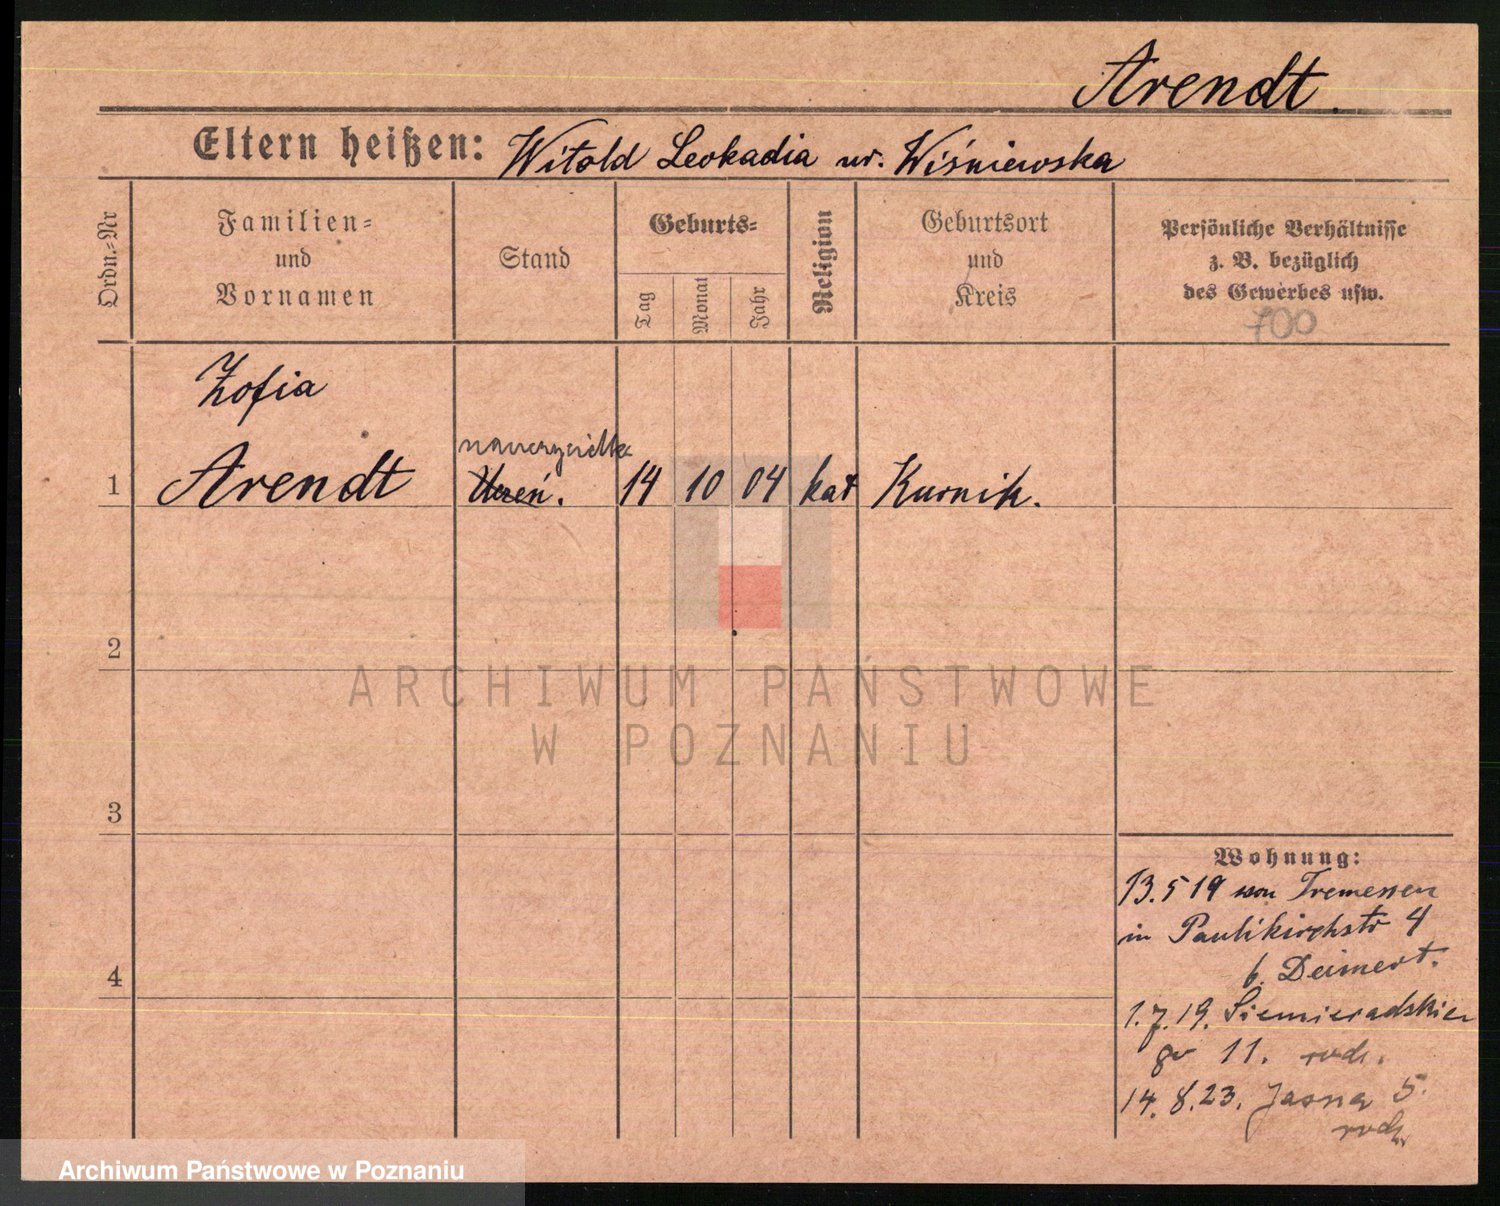 Arendt.
Eltern heißen: Witold Leokadia ur. Wiśniewska
Ordn.=Nr
Familien=
und
Vornamen
Stand
Geburts=
Tag
Monat
Jahr
Religion
Geburtsort
und
Kreis
Persönliche Verhältnisse
z. B. bezüglich
des Gewerbes usw.
700
Zofia
nauczycielka
1 Arendt Uczeń. 14 10 04 kat Kurnik.
2
3
4
Wohnung:
13.5 19 von Tremessen
in Paulikirchstr 4
b. Deimert.
1.7.19. Siemieradskie
go 11. rodz.
14.8.23. Jasna 5.
rodz.
ARCHIWUM PAŃSTWOWE
W POZNANIU
Archiwum Państwowe w Poznaniu